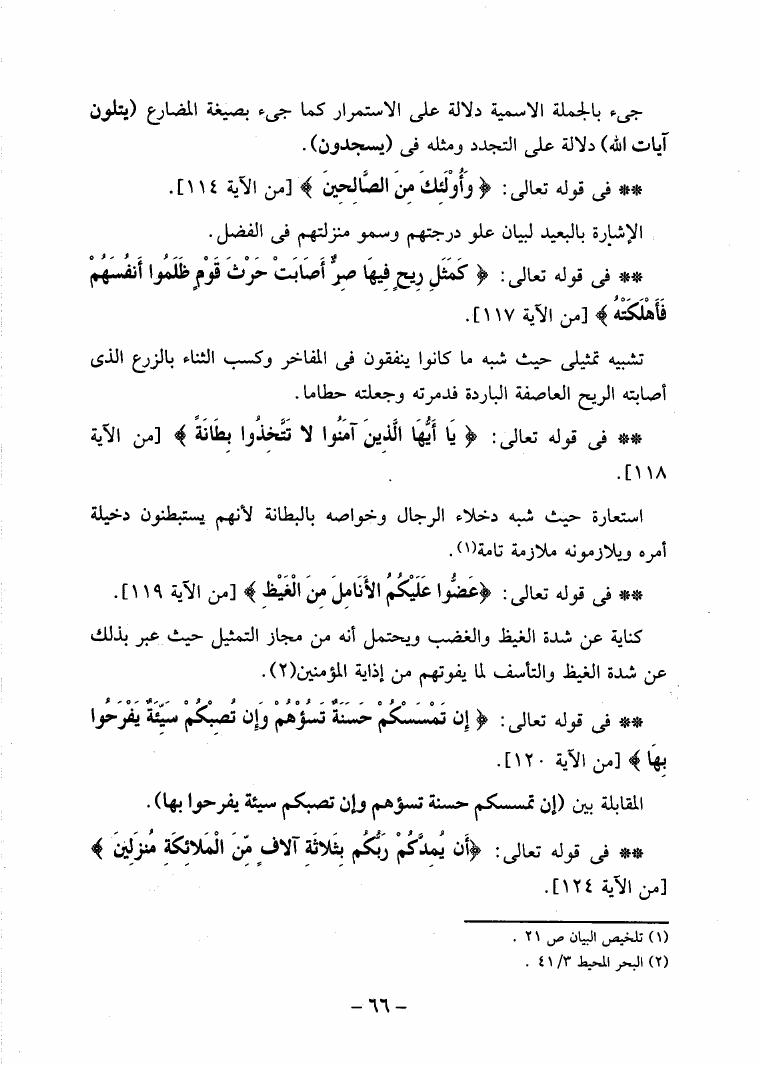 جىء بالجملة الاسمية دلالة على الاستمرار كما جىء بصيغة المضارع (يتلون
آيات الله) دلالة على التجدد ومثله فى (يسجدون).
** فى قوله تعالى: ﴿ وَأُوْلَئِكَ مِنَ الصَّالِحِينَ ﴾ [من الآية ١١٤].
الإشارة بالبعيد لبيان علو درجتهم وسمو منزلتهم فى الفضل.
** فى قوله تعالى: ﴿ كَمَثَلِ رِيحٍ فِيهَا صِرٌّ أَصَابَتْ حَرْثَ قَوْمٍ ظَلَمُوا أَنفُسَهُمْ
فَأَهْلَكَتْهُ ﴾ [من الآية ١١٧].
تشبيه تمثيلى حيث شبه ما كانوا ينفقون فى المفاخر وكسب الثناء بالزرع الذى
أصابته الريح العاصفة الباردة فدمرته وجعلته حطاما.
** فى قوله تعالى: ﴿ يَا أَيُّهَا الَّذِينَ آمَنُوا لا تَتَّخِذُوا بِطَانَةً ﴾ [من الآية
١١٨].
استعارة حيث شبه دخلاء الرجال وخواصه بالبطانة لأنهم يستبطنون دخيلة
أمره ويلازمونه ملازمة تامة(١).
** فى قوله تعالى: ﴿عَضُّوا عَلَيْكُمُ الأَنَامِلَ مِنَ الْغَيْظِ ﴾ [من الآية ١١٩].
كناية عن شدة الغيظ والغضب ويحتمل أنه من مجاز التمثيل حيث عبر بذلك
عن شدة الغيظ والتأسف لما يفوتهم من إذاية المؤمنين(٢).
** فى قوله تعالى: ﴿ إِن تَمْسَسْكُمْ حَسَنَةٌ تَسُؤْهُمْ وَإِن تُصِبْكُمْ سَيِّئَةٌ يَفْرَحُوا
بِهَا ﴾ [من الآية ١٢٠].
المقابلة بين (إن تمسسكم حسنة تسؤهم وإن تصبكم سيئة يفرحوا بها).
** فى قوله تعالى: ﴿أَن يُمِدَّكُمْ رَبُّكُم بِثَلاثَةِ آلافٍ مِّنَ الْمَلائِكَةِ مُنزَلِينَ ﴾
[من الآية ١٢٤].
(١) تلخيص البيان ص ٢١ .
(٢) البحر المحيط ٤١/٣ .
– ٦٦ –